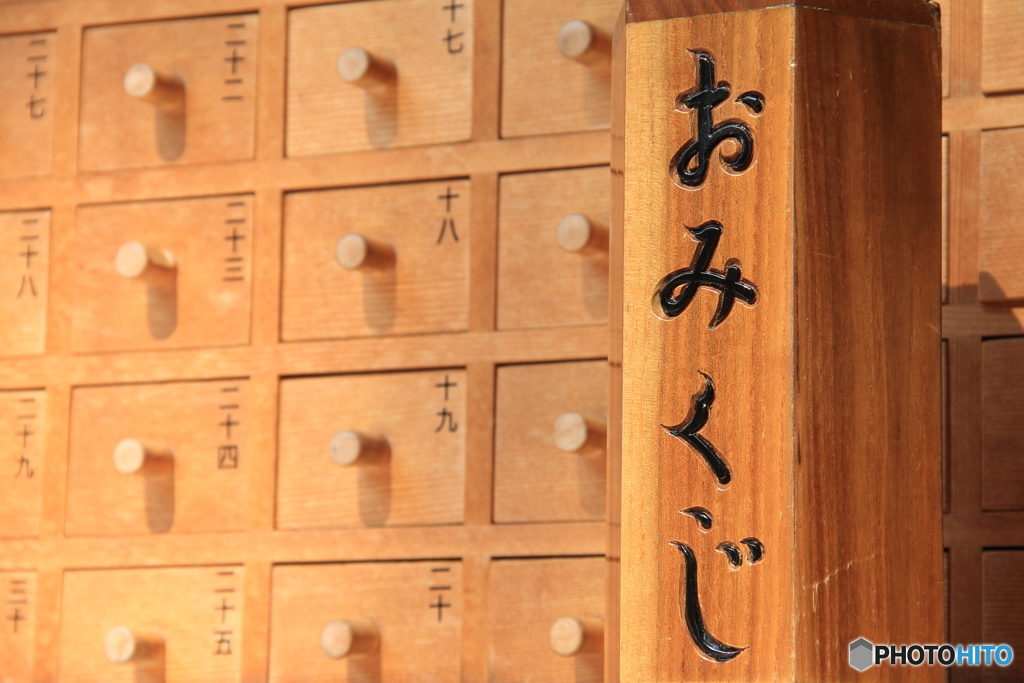 おみくじ
十七
十八
十九
二十
二十二
二十三
二十四
二十五
二十七
二十八
二十九
三十
PHOTOHITO